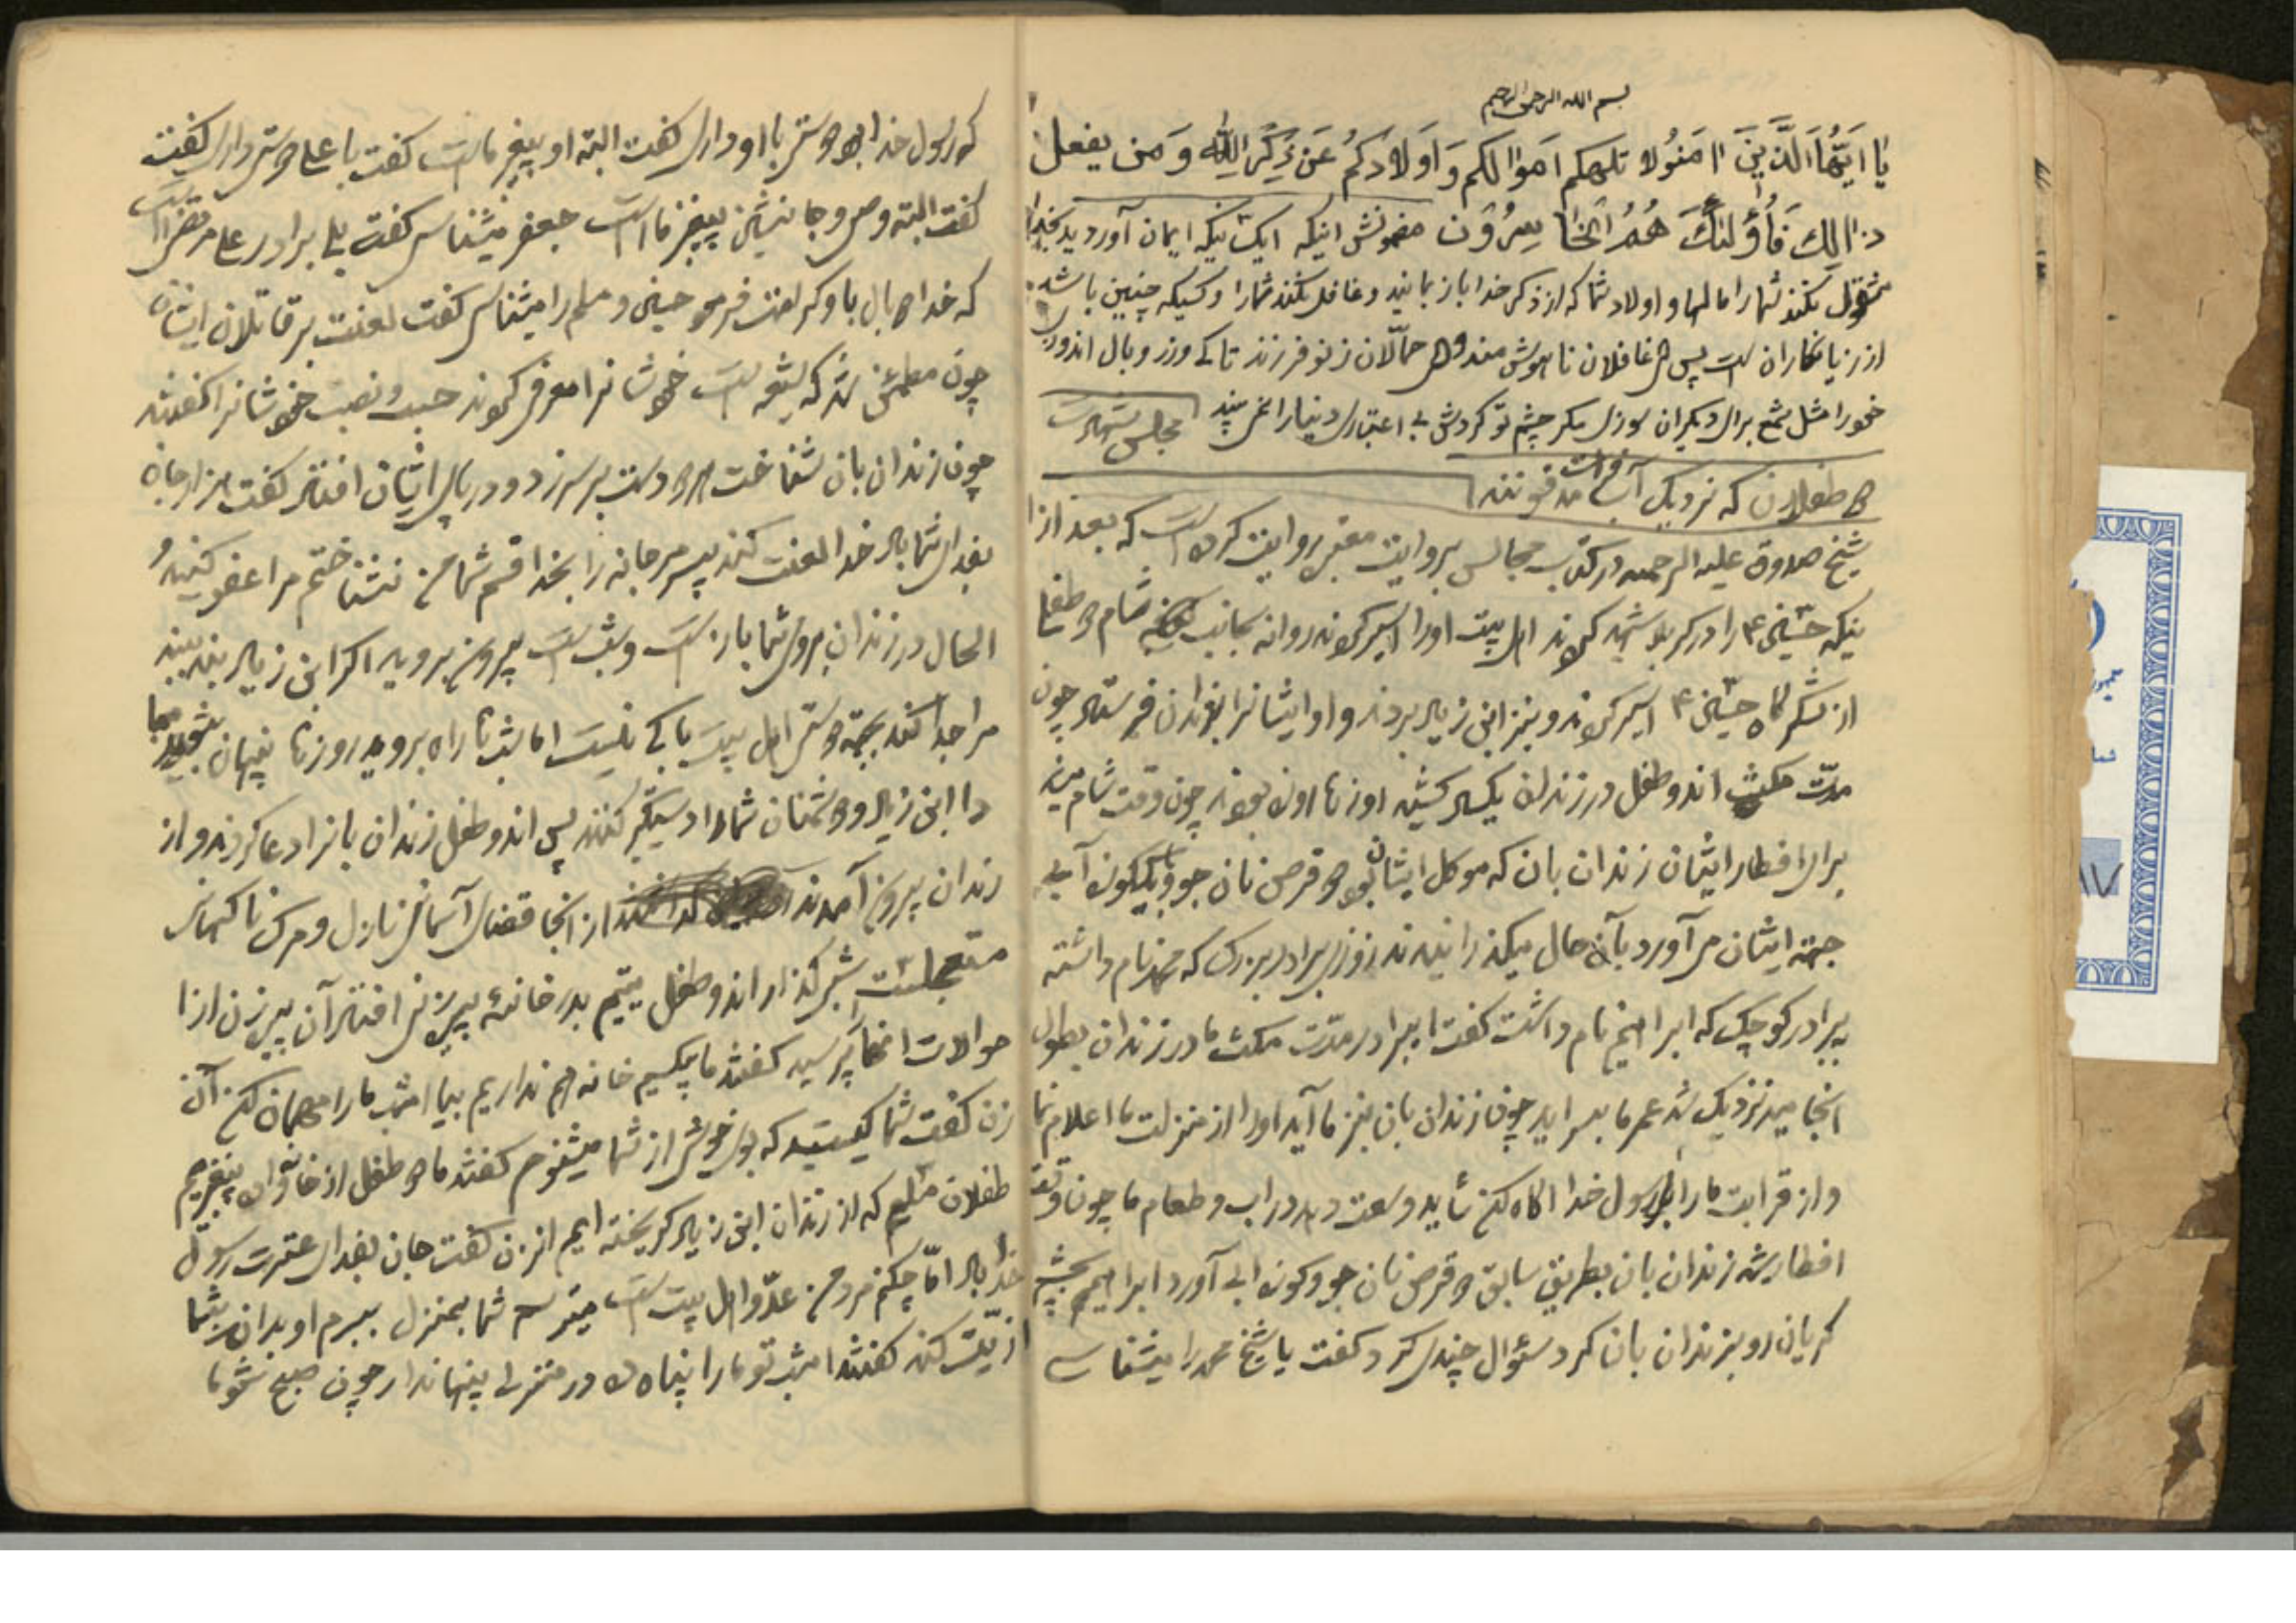 بسم الله الرحمن الرحیم
یا ایّها الّذین امنوا لا تلهکم اموالکم و اولادکم عن ذکر الله و من یفعل
ذالک فأولئک هم الخاسرون مضمونش اینکه ایکسانیکه ایمان آوردید بخدا
مشغول نکند شما را مالها و اولاد شما که از ذکر خدا باز بمانید و غافل نکند شما را و کسیکه چنین باشد
از زیانکاران است پس ای غافلان ناهوشمند و ای حمّالان زن و فرزند تا کی وزر و بال اندوزی
خود را مثل شمع برای دیگران سوزی مگر چشم تو گردش بی اعتباری دنیا را نمی بیند مجلس شهادت
دو طفلان که نزدیک آب فرات مدفونند
شیخ صدوق علیه الرحمه در کتاب مجالس بروایت معتبر روایت کرده است که بعد از
اینکه حسین ع را در کربلا شهید کردند اهل بیت او را اسیر کردند روانه بجانب شام دو طفل
از لشکرگاه حسین ع اسیر کردند و بنزد ابن زیاد بردند و او ایشانرا بزندان فرستاد چون
مدّت مکث اندو طفل در زندان یکسال کشید روزها روزه بودند چون وقت شام میشد
برای افطار ایشان زندان بان که موکل ایشان بود دو قرص نان جو و یککوزه آبی
جهة ایشان می آورد بآن حال میگذرانیدند روزی برادر بزرگ که محمد نام داشته
به برادر کوچک که ابراهیم نام داشت گفت ای برادر مدّت مکث ما در زندان بطول
انجامید نزدیک شد عمر ما بسر اید چون زندان بان بنزد ما آید او را از منزلت ما اعلام نما
و از قرابت ما را برسول خدا اگاه کن شاید وسعت دهد در اب و طعام ما چون وقت
افطار شد زندان بان بطریق سابق دو قرص نان جو و کوزه ابی آورد ابراهیم بچشم
گریان رو بزندان بان کرد سئوال چندی کرد گفت یا شیخ محمد را میشناسی
که رسول خدا بود دوستی با او داری گفت البته او پیغمبر ماست گفت با علی دوستی داری گفت
گفت البته وصی و جانشین پیغمبر ما است جعفر میشناسی گفت بلی برادر علی مرتضی است
که خدا دو بال باو کرامت فرمود حسین و مسلم را میشناسی گفت لعنت بر قاتلان ایشان
چون مطمئن شد که شیعه است خودشانرا معرفی کردند حسب و نصب خودشانرا گفتند
چون زندان بان شناخت هر دو دست بر سر زد و در پای ایشان افتاد گفت هزار جان
بفدای شما باد خدا لعنت کند پسر مرجانه را بخدا قسم شما من نشناختم مرا عفو کنید و
الحال در زندان بروی شما باز است و شب است بیرون بروید اگر ابن زیاد بند بند
مرا جدا کند بجهة دوستی اهل بیت باکی نیست اما شبها راه بروید روزها پنهان شوید مبادا
ابن زیاد و دشمنان شما را دستگیر کنند پس اندو طفل زندان بانرا دعا کردند و از
زندان بیرون آمدند از انجا قضای آسمانی نازل و مرک ناگهانی
متعجل است شب گذار اندو طفل یتیم بدر خانهٔ پیرزنی افتاد آن پیرزن از
حوالات انها پرسید گفتند ما بیکسیم خانه هم نداریم بیا امشب ما را مهمان کن آن
زن گفت شما کیستید که بوی خوش از شما میشنوم گفتند ما دو طفل از خانواده پیغمبریم
طفلان مسلم که از زندان ابن زیاد گریخته ایم انزن گفت جان بفدای عترت رسول
خدا باد امّا چکنم مرد من عدّو اهل بیت است میترسم شما بمنزل ببرم او بداند بشما
اذیّت کند گفتند امشب تو ما را پناه ده در منزلی پنهاندار چون صبح شود ما